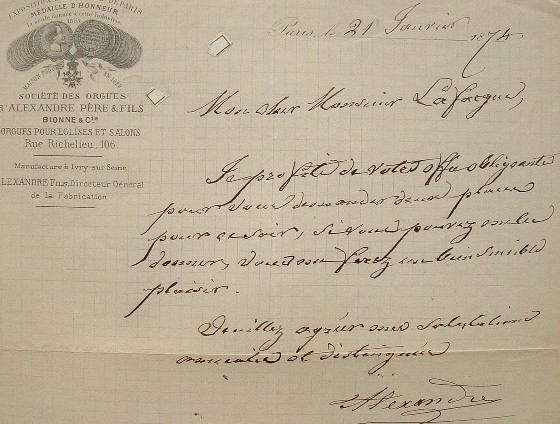 EXPOSITION DE PARIS
MÉDAILLE D'HONNEUR
la seule donnée à cette Industrie
MAISON FONDÉE EN 1829
SOCIÉTÉ DES ORGUES
D'ALEXANDRE PÈRE & FILS
BIONNE & Cie
ORGUES POUR EGLISES ET SALONS
Rue Richelieu, 106
Manufacture à Ivry-sur-Seine
ALEXANDRE FILS, Directeur Général
de la Fabrication
Paris, le 21 Janvier 1874
Mon cher Monsieur Lafargue,
Je profite de votre offre obligeante
pour vous demander deux places
pour ce soir, si vous pouvez me les
donner, vous me ferez un bien sensible
plaisir.
Veuillez agréer mes salutations
amicales et distinguées
Alexandre